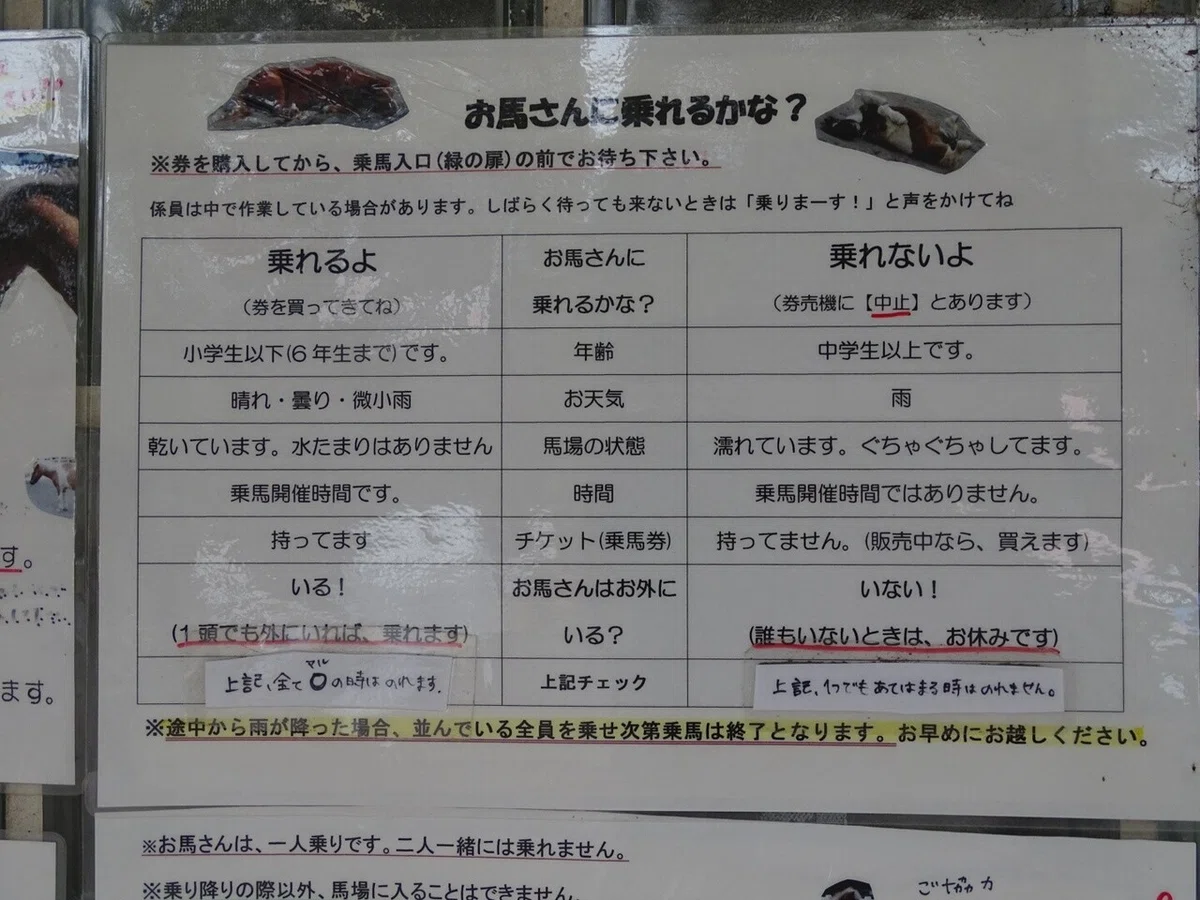 お馬さんに乗れるかな？
※券を購入してから、乗馬入口(緑の扉)の前でお待ち下さい。
係員は中で作業している場合があります。しばらく待っても来ないときは「乗りまーす！」と声をかけてね
乗れるよ
(券を買ってきてね)
お馬さんに
乗れるかな？
乗れないよ
(券売機に【中止】とあります)
小学生以下(6年生まで)です。
年齢
中学生以上です。
晴れ・曇り・微小雨
お天気
雨
乾いています。水たまりはありません
馬場の状態
濡れています。ぐちゃぐちゃしてます。
乗馬開催時間です。
時間
乗馬開催時間ではありません。
持ってます
チケット(乗馬券)
持ってません。(販売中なら、買えます)
いる！
(1頭でも外にいれば、乗れます)
お馬さんはお外に
いる？
いない！
(誰もいないときは、お休みです)
マル
上記、全て○の時はのれます。
上記チェック
上記、1つでもあてはまる時はのれません。
※途中から雨が降った場合、並んでいる全員を乗せ次第乗馬は終了となります。お早めにお越しください。
す。
ます。
※お馬さんは、一人乗りです。二人一緒には乗れません。
※乗り降りの際以外、馬場に入ることはできません。